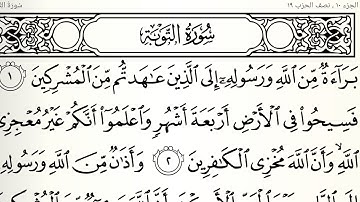 الجزء ١٠، نصف الحزب ١٩
سُورَةُ التَّوْبَةِ
بَرَآءَةٌ مِّنَ ٱللَّهِ وَرَسُولِهِۦٓ إِلَى ٱلَّذِينَ عَٰهَدتُّم مِّنَ ٱلْمُشْرِكِينَ ١
فَسِيحُوا۟ فِى ٱلْأَرْضِ أَرْبَعَةَ أَشْهُرٍ وَٱعْلَمُوٓا۟ أَنَّكُمْ غَيْرُ مُعْجِزِى
ٱللَّهِ ۙ وَأَنَّ ٱللَّهَ مُخْزِى ٱلْكَٰفِرِينَ ٢ وَأَذَٰنٌ مِّنَ ٱللَّهِ وَرَسُولِهِۦٓ